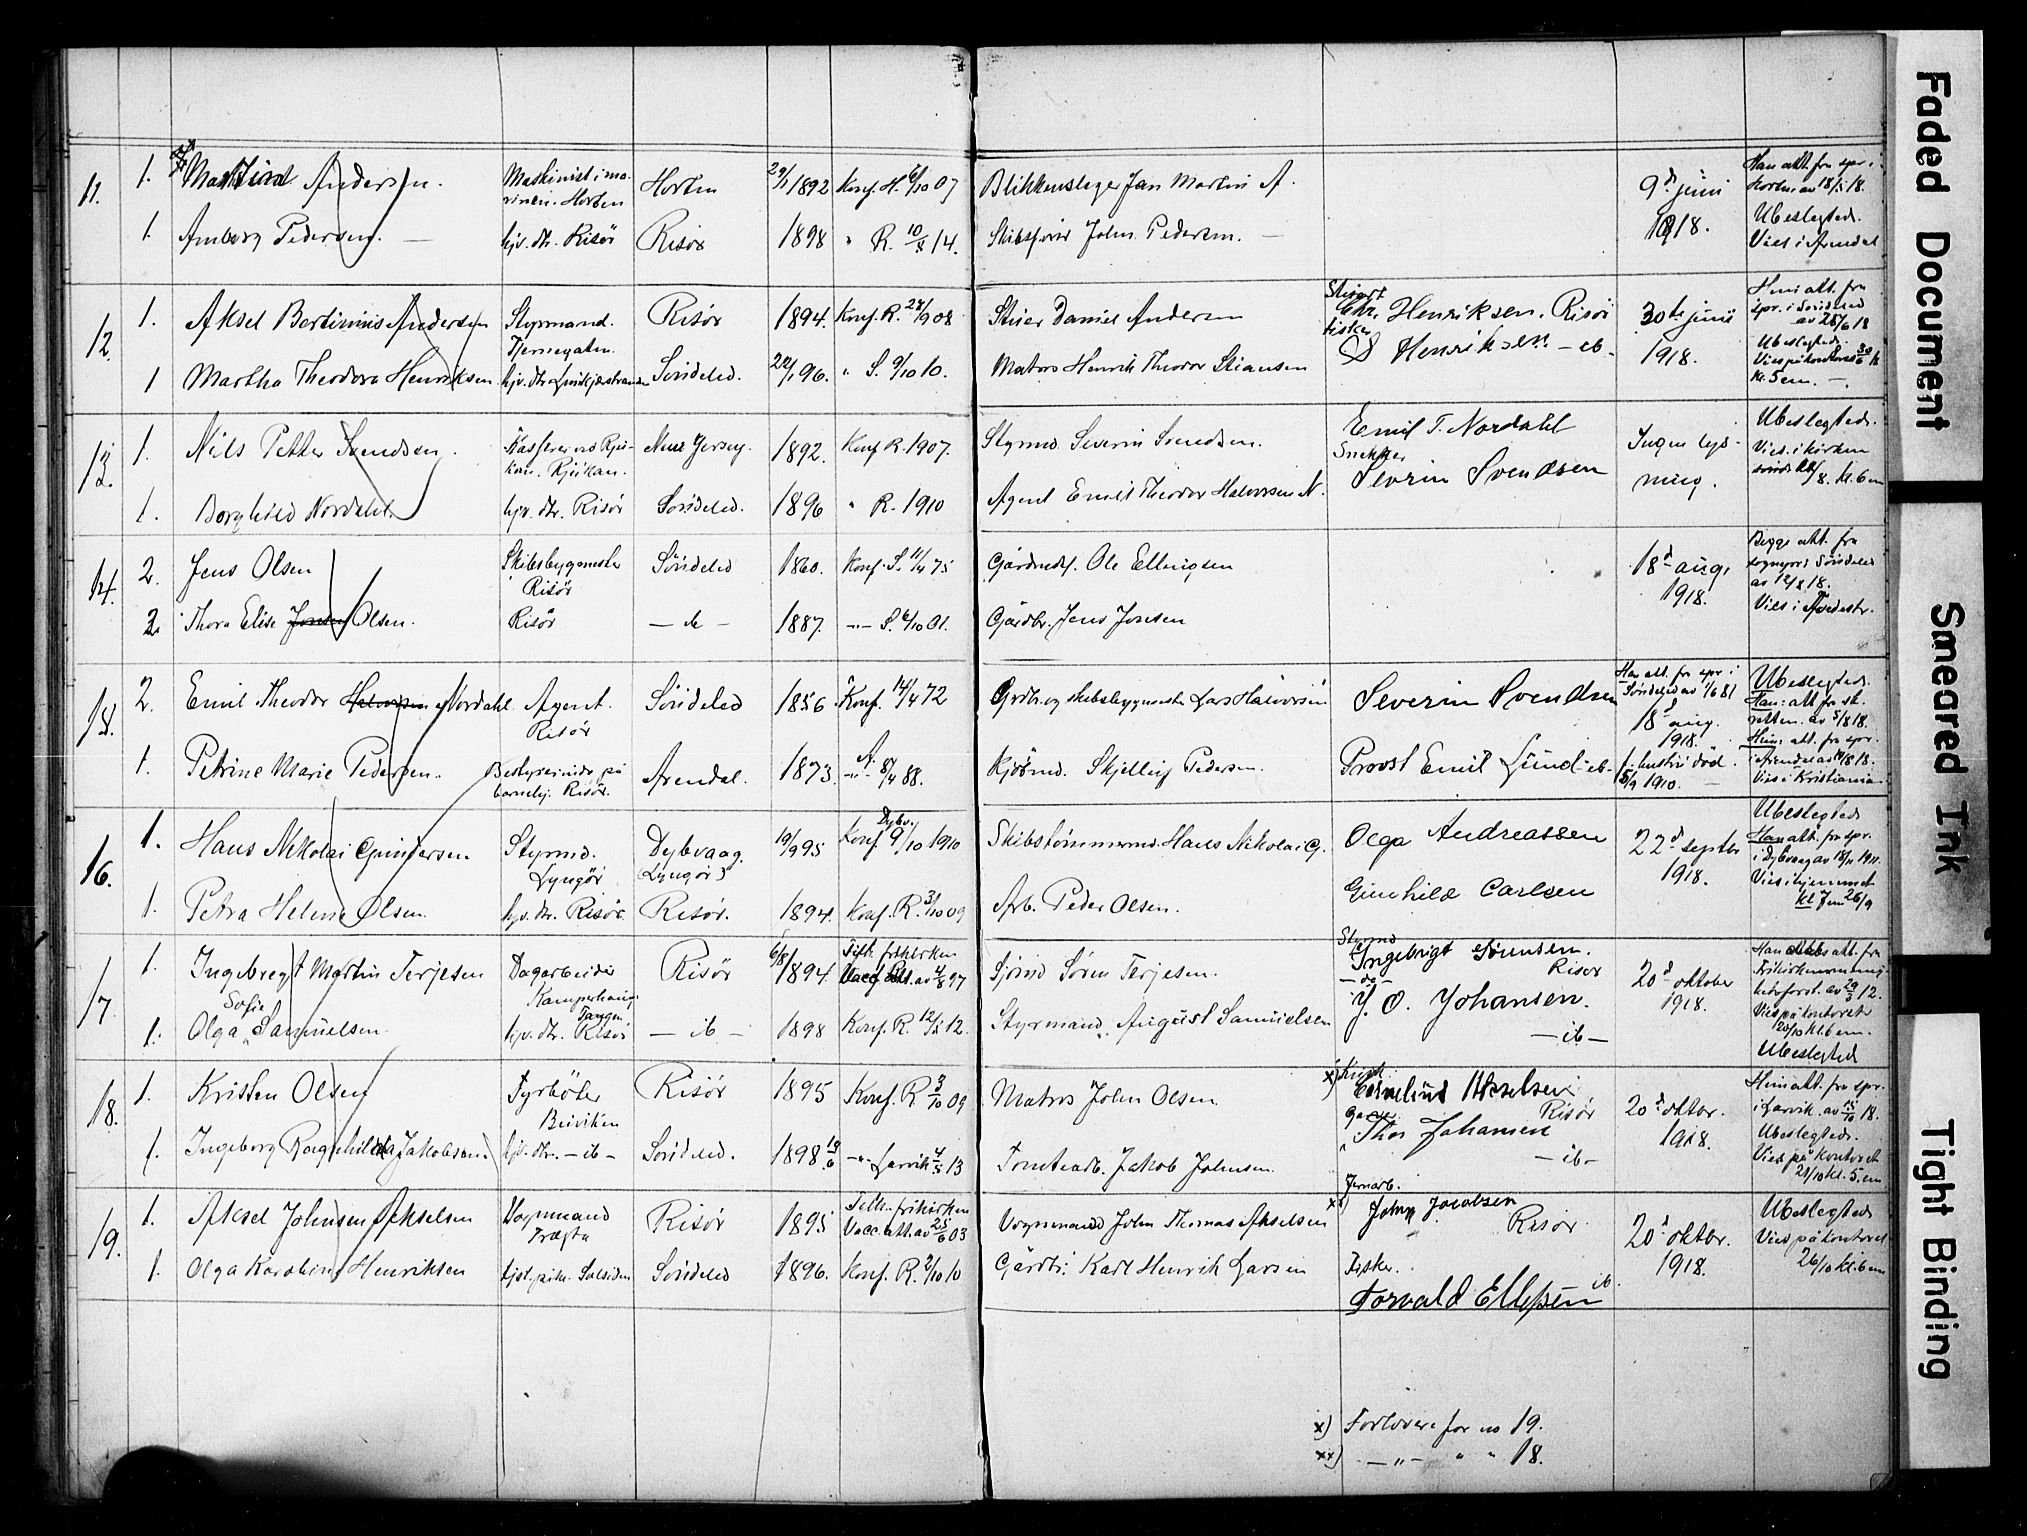 11. 1. Andersen. Maskinist i ma-
rinen. Horten Horten 29/1 1892 Konf. H. 6/10 07 Blikkenslager Jan Martin A. 9d juni
1918. Han att. fra spr. i
Horten av 18/5 18.
1. Amborg Pedersen. — hjv. dtr. Risör Risör 1898 " R. 10/5 14. Skibsfører John Pedersen. — Ubeslegted.
Vies i Arendal
12. 1. Aksel Bertinius Andersen Styrmand.
Tjernegaten. Risör 1894. Konf. R. 27/9 08 Stuer Daniel Andersen Stuert
Chr. Henriksen. Risör 30te juni
1918. Hun att. fra
spr. i Söndeled
av 28/6 18
1 Martha Theodora Henriksen hjv. dtr. Söndeled. 22/1 96. " S. 9/10 10. Matros Henrik Theodor Stiansen fisker
Henriksen. — ib - Ubeslegted.
Vies på kontoret 30/6
kl. 5 em. —.
13. 1. Nils Petter Svendsen. Kasserer ved Rju-
kan. Rjukan. New Jersey. 1892. Konf R. 1907. Styrmd. Severin Svendsen. Emil T. Nordahl Ingen lys-
ning. Ubeslegted.
Vies i kirken
1. Borghild Nordahl hjv. dtr. Risör Söndeled. 1896 " R. 1910 Agent Emil Theodor Halvorsen N. Snekker
Severin Svendsen /8. kl. 6 em
14. 2. Jens Olsen Skibsbygmester
Risör Söndeled 1860. Konf. S. 11/4 75 Gårdmd. Ole Ellingsen 18d aug.
1918. Begge att. fra
sognepr i Söndeled
av 12/8 18.
2. Thora Elise Jonsen Olsen. Risör — ib — 1887. —"— S. 6/10 01. Gårdbr. Jens Jonsen Vies i Tvedestr.
15. 2. Emil Theodor Halvorsen Nordahl Agent.
Risör Söndeled 1856 Konf. 14/4 72 Grdbr. og skibsbygmester Lars Halvorsen Severin Svendsen Han att. fra spr. i
Söndeled av 1/6 81
18d aug.
1918. Ubeslegted.
Han: att fra sk.
retten. av 5/8 18.
1. Petrine Marie Pedersen. Bestyrerinde på
barnehj. Risör. Arendal. 1873. —"— A. 8/4 88. Kjöbmd. Skjelling Pedersen. Provst Emil Lund - ib - f. hustru död
5/9 1910. — Hun: att. fra spr.
i Arendal av 14/8 18.
Vies i Kristiania
16. 1. Hans Nikolai Gundersen Styrmd.
Lyngör Dybvaag.
(Lyngör) 19/9 95 Dybv.
Konf 9/10 1910 Skibstømmermd. Hans Nikolai G. Olga Andreassen 22d septbr
1918. Ubeslegted
Han att. fra spr.
i Dybvaag av 18/11 1911.
1. Petra Helene Olsen hjv. dtr. Risör. Risör. 1894. Konf. R. 3/10 09 Arb. Peder Olsen. Gunhild Carlsen Vies i hjemmet
kl 7 em 26/9
17. 1. Ingebregt Martin Terjesen Dagarbeider
Kamperhaug Risör 6/8 1894. Tilh. frikirken
Vacc att. av 4/8 97 Sjömd Sören Terjesen. Styrmd
Ingebrigt Sörensen.
Risör 20d oktober
1918. Han att. fra
Frikirkemenig-
hets forst. av 29/3 12.
Sofie
1. Olga Samuelsen Tangen
hjv. dtr. Risör — ib — 1898 Konf. R. 12/5 12. Styrmand. August Samuelsen — do —
J. O. Johansen.
— ib — Vies på kontoret
20/10 kl. 6 em.
Ubeslegted
18. 1. Kristen Olsen Fyrböter
Buviken Risör 1895 Konf. R 3/10 09 Matros John Olsen. x)
Cornelius Akselsen
Risör 20d oktbr.
1918. Hun att. fra spr.
i Larvik av 15/10 18.
1. Ingeborg Ragnhilda Jakobsen. hjv. dtr. — ib — Söndeled. 1898 19/6 —"— Larvik 4/5 13 Tomtearb. Jakob Johnsen. Thor Johansen
— ib — Ubeslegted.
Vies på kontoret
21/10 kl. 5. em
19. 1. Aksel Johnsen Akselsen Vognmand
Trægta Risör 1895 Tilh. frikirken
Vacc. att. av 25/6 03 Vognmand John Thomas Akselsen Jernarb.
John Jacobsen
Risör 20d oktbr.
1918. Ubeslegted
Vies på kontoret
1. Olga Karoline Henriksen tjst. pike. Solsiden Söndeled 1896. Konf. R. 2/10 10 Gårdbr. Karl Henrik Larsen Fisker.
Torvald Ellefsen ib 26/10 kl. 6 em
x) Forlovere for no 19.
xx) —"— " " 18.
Faded Document
Smeared Ink
Tight Binding